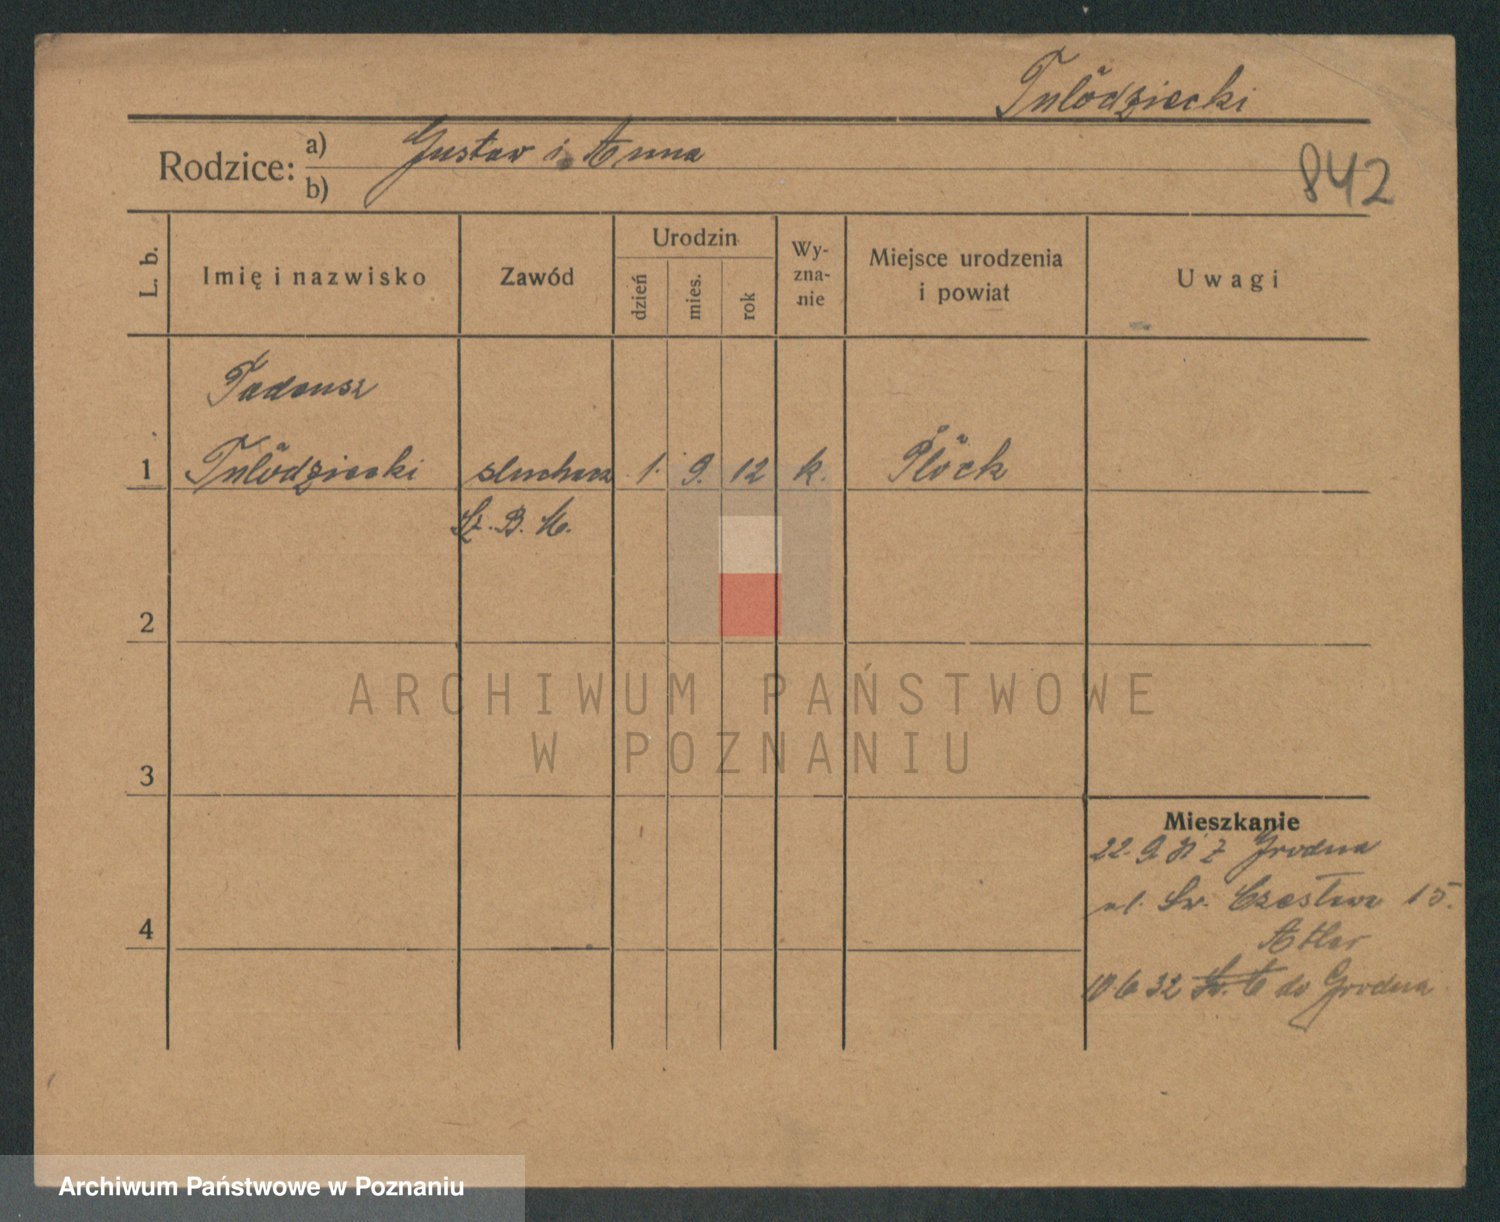 Tułodziecki
Rodzice: a) Gustaw i Anna
b)
842
L. b.
Imię i nazwisko
Zawód
Urodzin
dzień
mies.
rok
Wy-
zna-
nie
Miejsce urodzenia
i powiat
Uwagi
Tadeusz
1 Tułodziecki słuchacz 1. 9. 12 k. Płock
Sz. B. M.
2
3
4
Mieszkanie
22. 9 31 z Grodna
ul. Św. Czesława 15.
Adler
10 6 32 do Grodna
ARCHIWUM PAŃSTWOWE
W POZNANIU
Archiwum Państwowe w Poznaniu